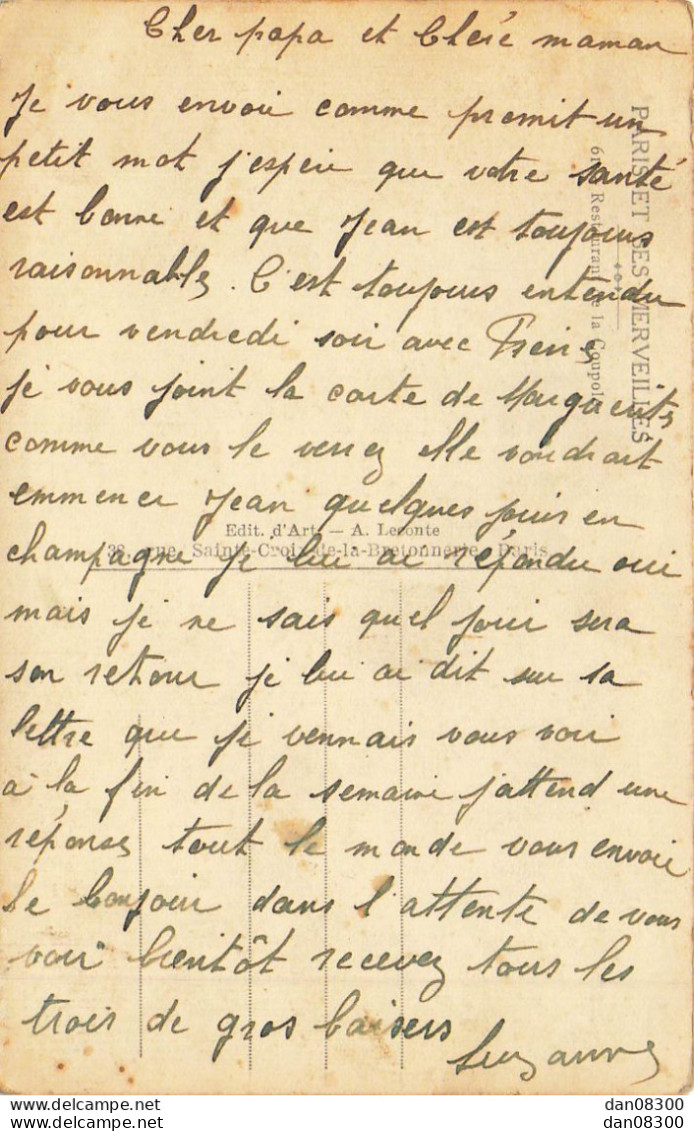 Cher papa et Chère maman
Je vous envoie comme promit un
petit mot j'espère que votre santé
est bonne et que Jean est toujours
raisonnable. C'est toujours entendu
pour vendredi soir avec
je vous joint la carte de Marguerite
comme vous le verrez elle voudrait
emmener Jean quelques jours en
champagne je lui ai répondu oui
mais je ne sais quel jour sera
son retour je lui ai dit sur sa
lettre que je vennais vous voir
à la fin de la semaine j'attend une
réponse tout le monde vous envoie
le bonjour dans l'attente de vous
voir bientôt recevez tous les
trois de gros baisers
Suzanne
PARIS ET SES MERVEILLES
Restaurant de la Coupole
Edit. d'Art — A. Leconte
38, rue Sainte-Croix-de-la-Bretonnerie, Paris
delcampe.net
dan08300
dan08300